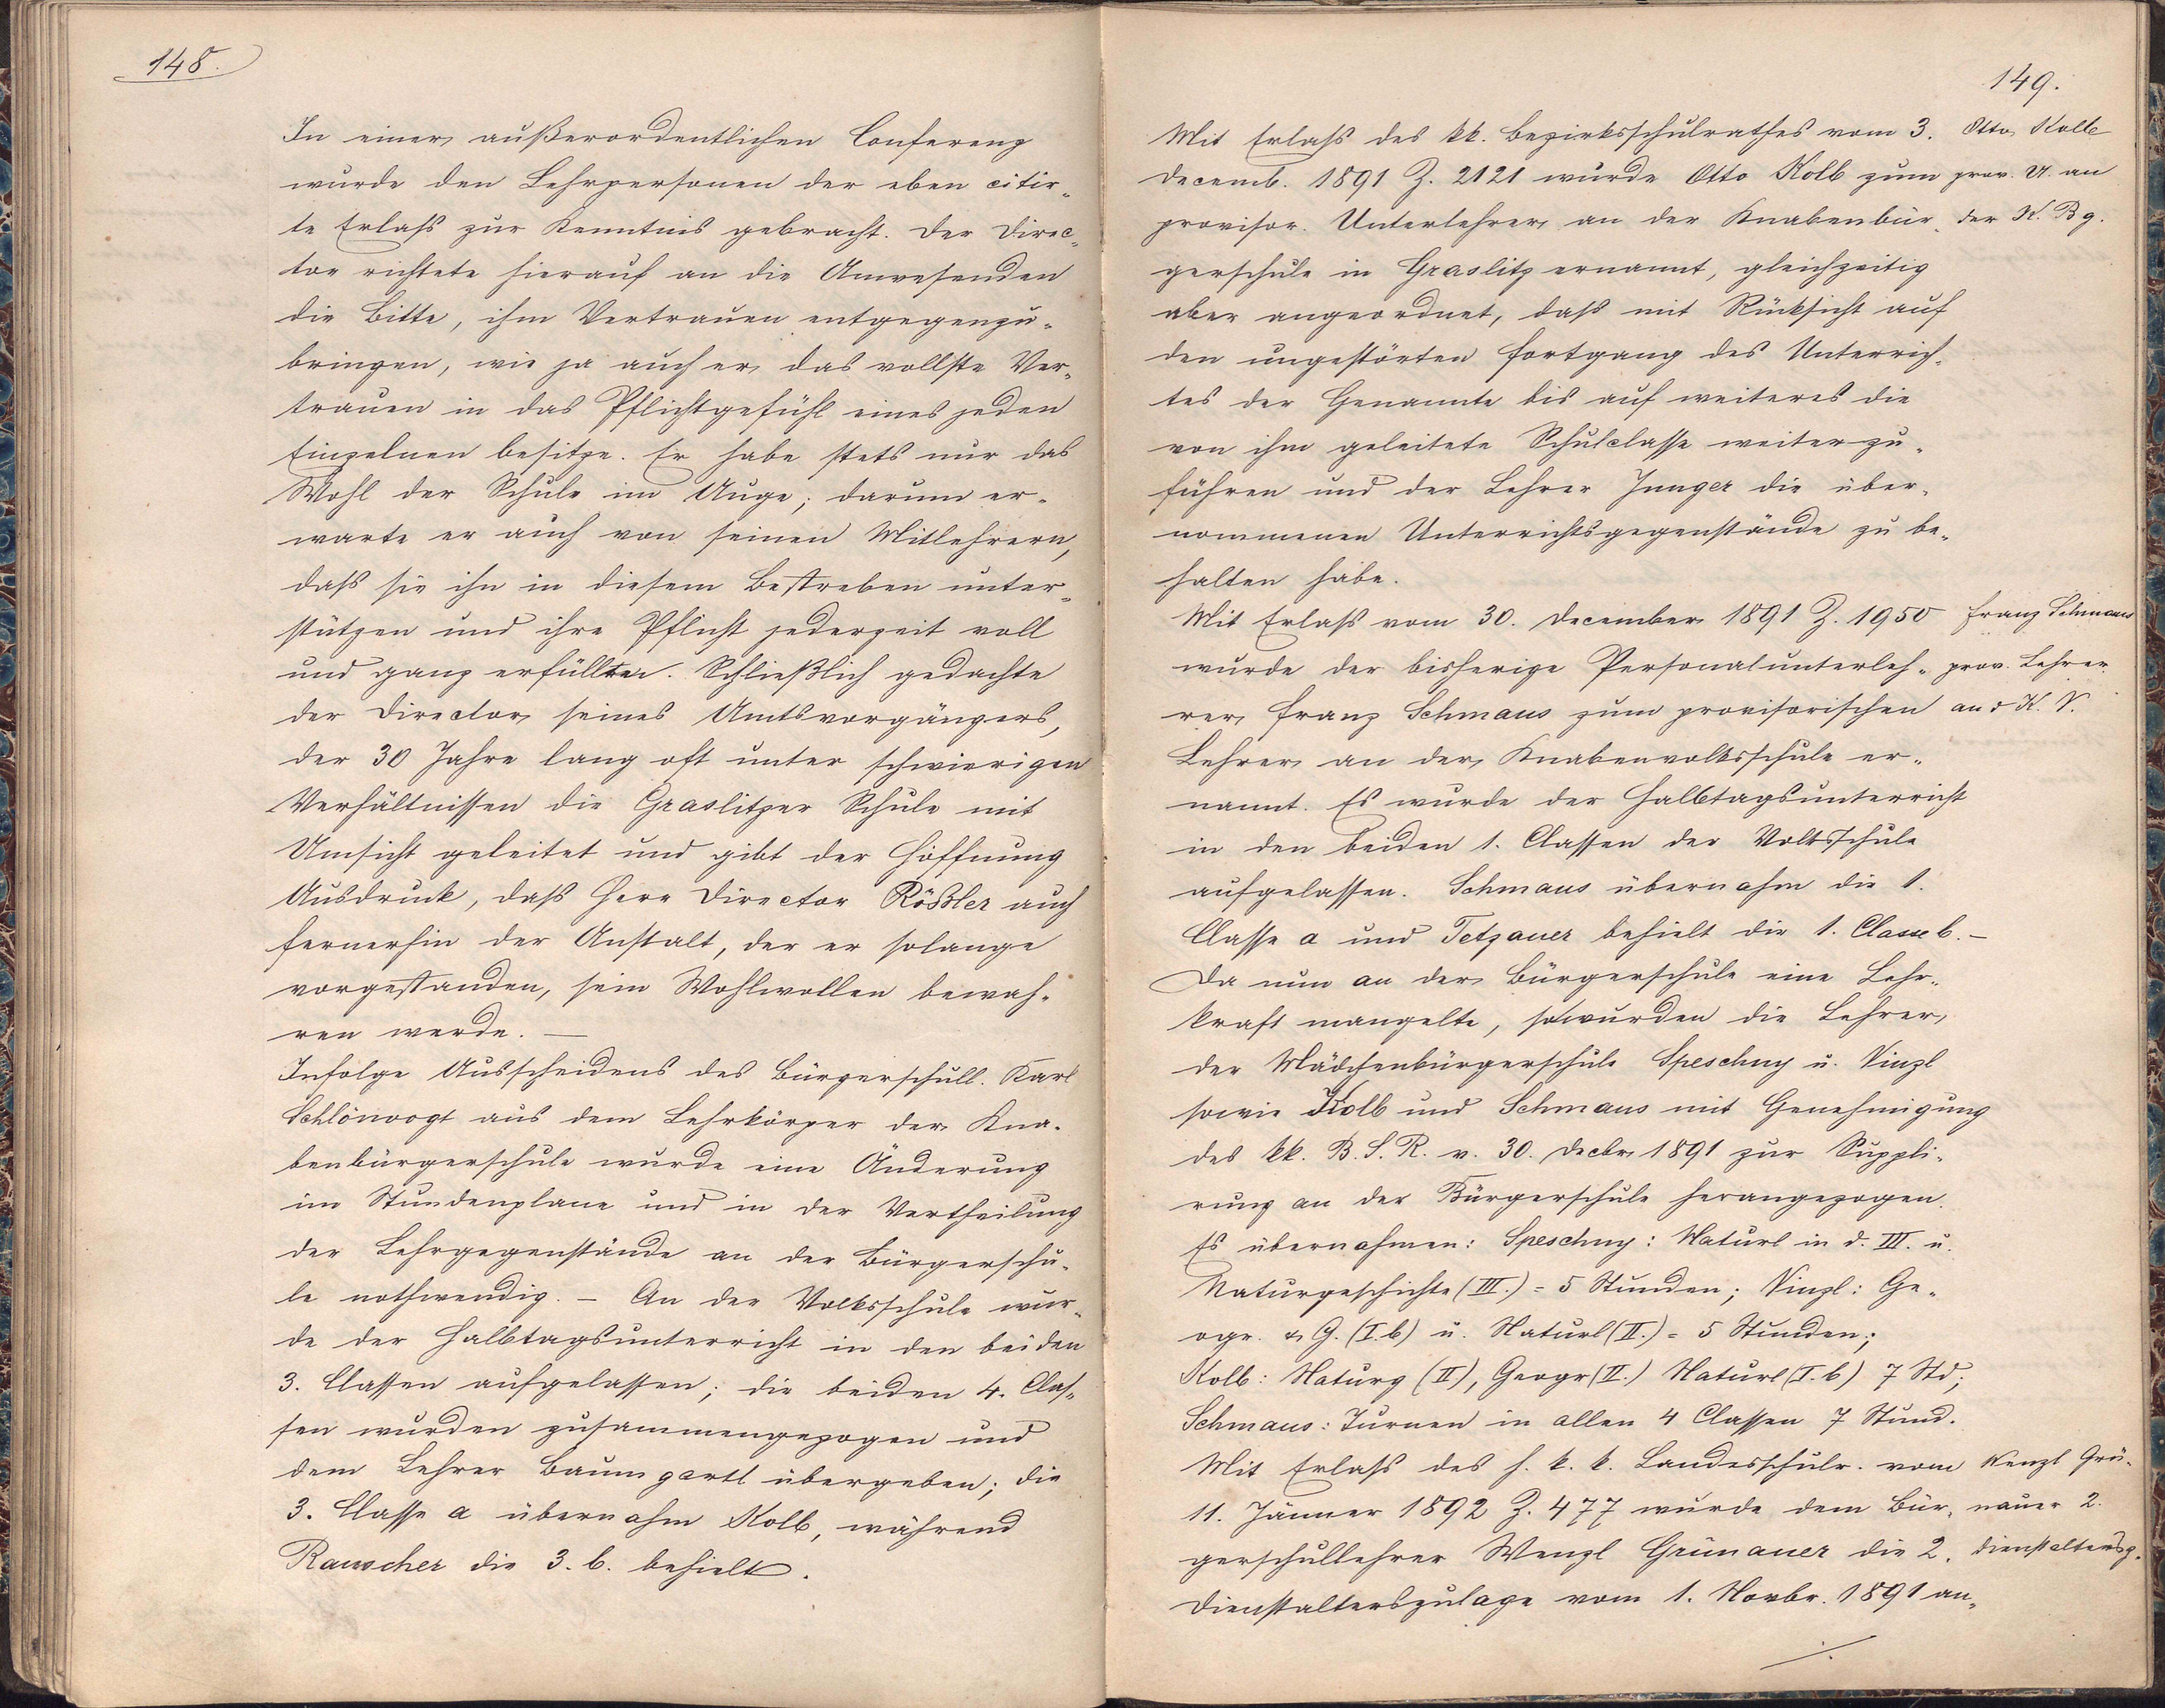 148.
In einer außerordentlichen Conferenz
wurde den Lehrpersonen der eben citir-
te Erlaß zur Kenntnis gebracht. Der Direc-
tor richtete hierauf an die Anwesenden
die Bitte, ihm Vertrauen entgegenzu-
bringen, wie ja auch er das vollste Ver-
trauen in das Pflichtgefühl eines jeden
Einzelnen besitze. Er habe stets nur das
Wohl der Schule im Auge; darum er-
warte er auch von seinen Mitlehrern,
daß sie ihn in diesem Bestreben unter-
stützen und ihre Pflicht jederzeit voll
und ganz erfüllten. Schließlich gedachte
der Director seines Amtsvorgängers,
der 30 Jahre lang oft unter schwierigen
Verhältnissen die Graslitzer Schule mit
Umsicht geleitet und gibt der Hoffnung
Ausdruck, daß Herr Director Rößler auch
fernerhin der Anstalt, der er solange
vorgestanden, sein Wohlwollen bewah-
ren werde. —
Infolge Ausscheidens des Bürgerschull. Karl
Schlönvogt aus dem Lehrkörper der Kna-
benbürgerschule wurde eine Änderung
im Stundenplane und in der Vertheilung
der Lehrgegenstände an der Bürgerschu-
le nothwendig. — An der Volksschule wur-
de der Halbtagsunterricht in den beiden
3. Classen aufgelassen; die beiden 4. Clas-
sen wurden zusammengezogen und
dem Lehrer Baumgartl übergeben; die
3. Classe a übernahm Kolb, während
Rauscher die 3. b. behielt.
149.
Mit Erlaß des kk. Bezirksschulrathes vom 3.
Decemb. 1891 Z. 2121 wurde Otto Kolb zum
provisor. Unterlehrer an der Knabenbür-
gerschule in Graslitz ernannt, gleichzeitig
aber angeordnet, daß mit Rücksicht auf
den ungestörten Fortgang des Unterrich-
tes der Genannte bis auf weiteres die
von ihm geleitete Schulclasse weiter zu-
führen und der Lehrer Junger die über-
nommenen Unterrichtsgegenstände zu be-
halten habe.
Otto Kolb
prov. U. an
der K. Bg.
Mit Erlaß vom 30. December 1891 Z. 1950
wurde der bisherige Personalunterleh-
rer Franz Schmaus zum provisorischen
Lehrer an der Knabenvolksschule er-
nannt. Es wurde der Halbtagsunterricht
in den beiden 1. Classen der Volksschule
aufgelassen. Schmaus übernahm die 1.
Classe a und Tetzauer behielt die 1. Classe b. —
Franz Schmaus
prov. Lehrer
an d K. V.
Da nun an der Bürgerschule eine Lehr-
kraft mangelte, so wurden die Lehrer
der Mädchenbürgerschule Speschny u. Vinzl
sowie Kolb und Schmaus mit Genehmigung
des kk. B. S. R. v. 30. Decbr 1891 zur Suppli-
rung an der Bürgerschule herangezogen.
Es übernahmen: Speschny: Naturl in d. III. u.
Naturgeschichte (III.) = 5 Stunden; Vinzl: Ge-
ogr. & G. (I. b) u. Naturl (II.) = 5 Stunden;
Kolb: Naturg (II), Geogr (II.) Naturl (I. b) 7 Std;
Schmaus: Turnen in allen 4 Classen 7 Stund.
Mit Erlaß des h. k. k. Landesschulr. vom
11. Jänner 1892 Z. 477 wurde dem Bür-
gerschullehrer Wenzl Grünauer die 2.
Dienstalterszulage vom 1. Novbr. 1891 an-
Wenzl Grü-
nauer 2.
Dienstaltersz.
./.